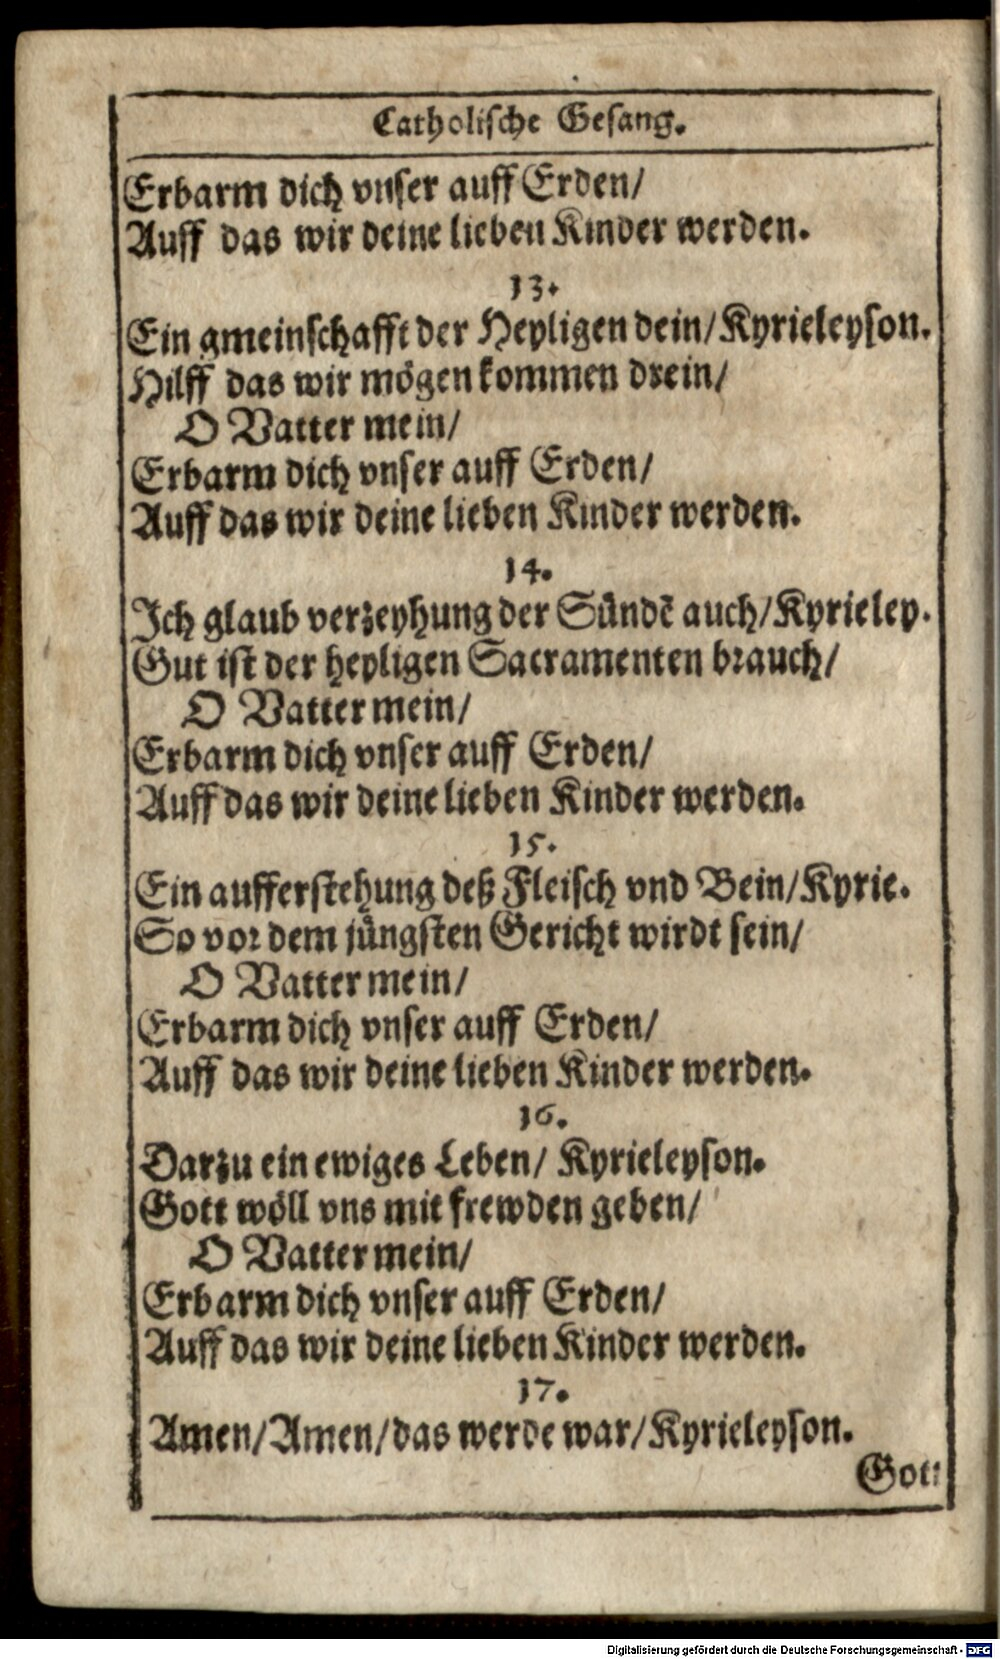 Catholische Gesang.
Erbarm dich vnser auff Erden/
Auff das wir deine lieben Kinder werden.
13.
Ein gmeinschafft der Heyligen dein/Kyrieleyson.
Hilff das wir mögen kommen drein/
O Vatter mein/
Erbarm dich vnser auff Erden/
Auff das wir deine lieben Kinder werden.
14.
Ich glaub verzeyhung der Sündẽ auch/Kyrieley.
Gut ist der heyligen Sacramenten brauch/
O Vatter mein/
Erbarm dich vnser auff Erden/
Auff das wir deine lieben Kinder werden.
15.
Ein aufferstehung deß Fleisch vnd Bein/Kyrie.
So vor dem jüngsten Gericht wirdt sein/
O Vatter mein/
Erbarm dich vnser auff Erden/
Auff das wir deine lieben Kinder werden.
16.
Darzu ein ewiges Leben/ Kyrieleyson.
Gott wöll vns mit frewden geben/
O Vatter mein/
Erbarm dich vnser auff Erden/
Auff das wir deine lieben Kinder werden.
17.
Amen/Amen/das werde war/Kyrieleyson.
Gott
Digitalisierung gefördert durch die Deutsche Forschungsgemeinschaft - DFG